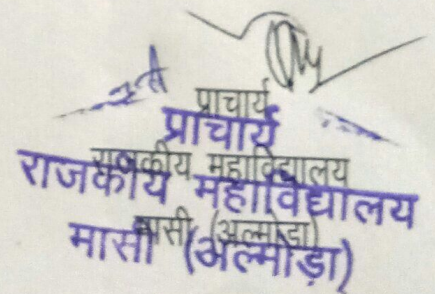 प्राचार्य
प्राचार्य
राजकीय महाविद्यालय
राजकीय महाविद्यालय
मासी (अल्मोड़ा)
मासी (अल्मोड़ा)